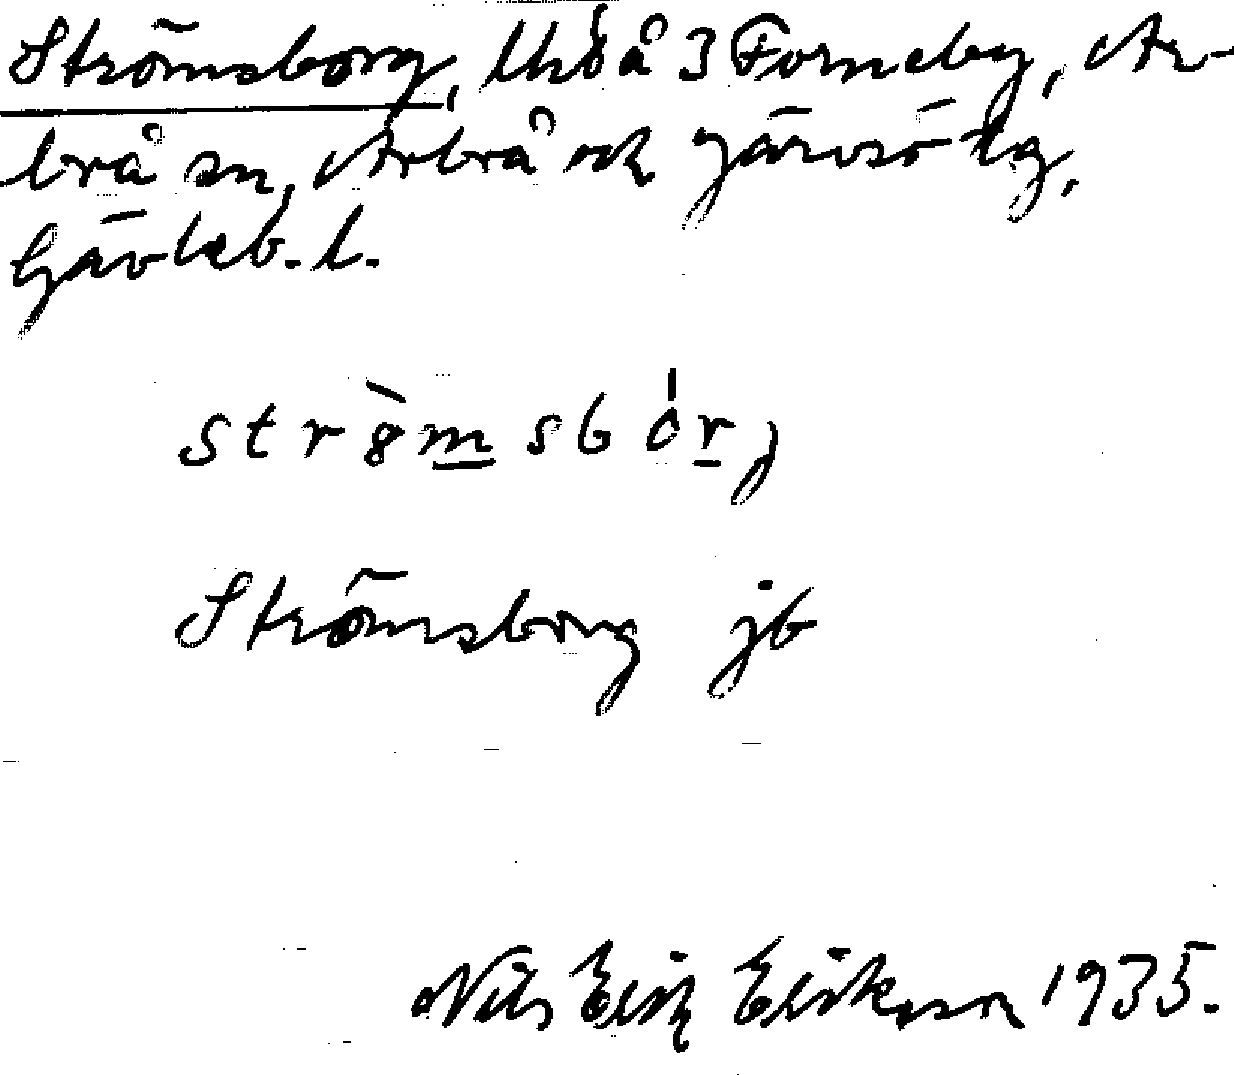 Strömsborg, lht å 3 Forneby, Ar-
brå sn, Arbrå och Järvsö tg,
Gävleb. l.
strö̀msbórj
Strömsborg jb
Nils Erik Eriksson 1935.